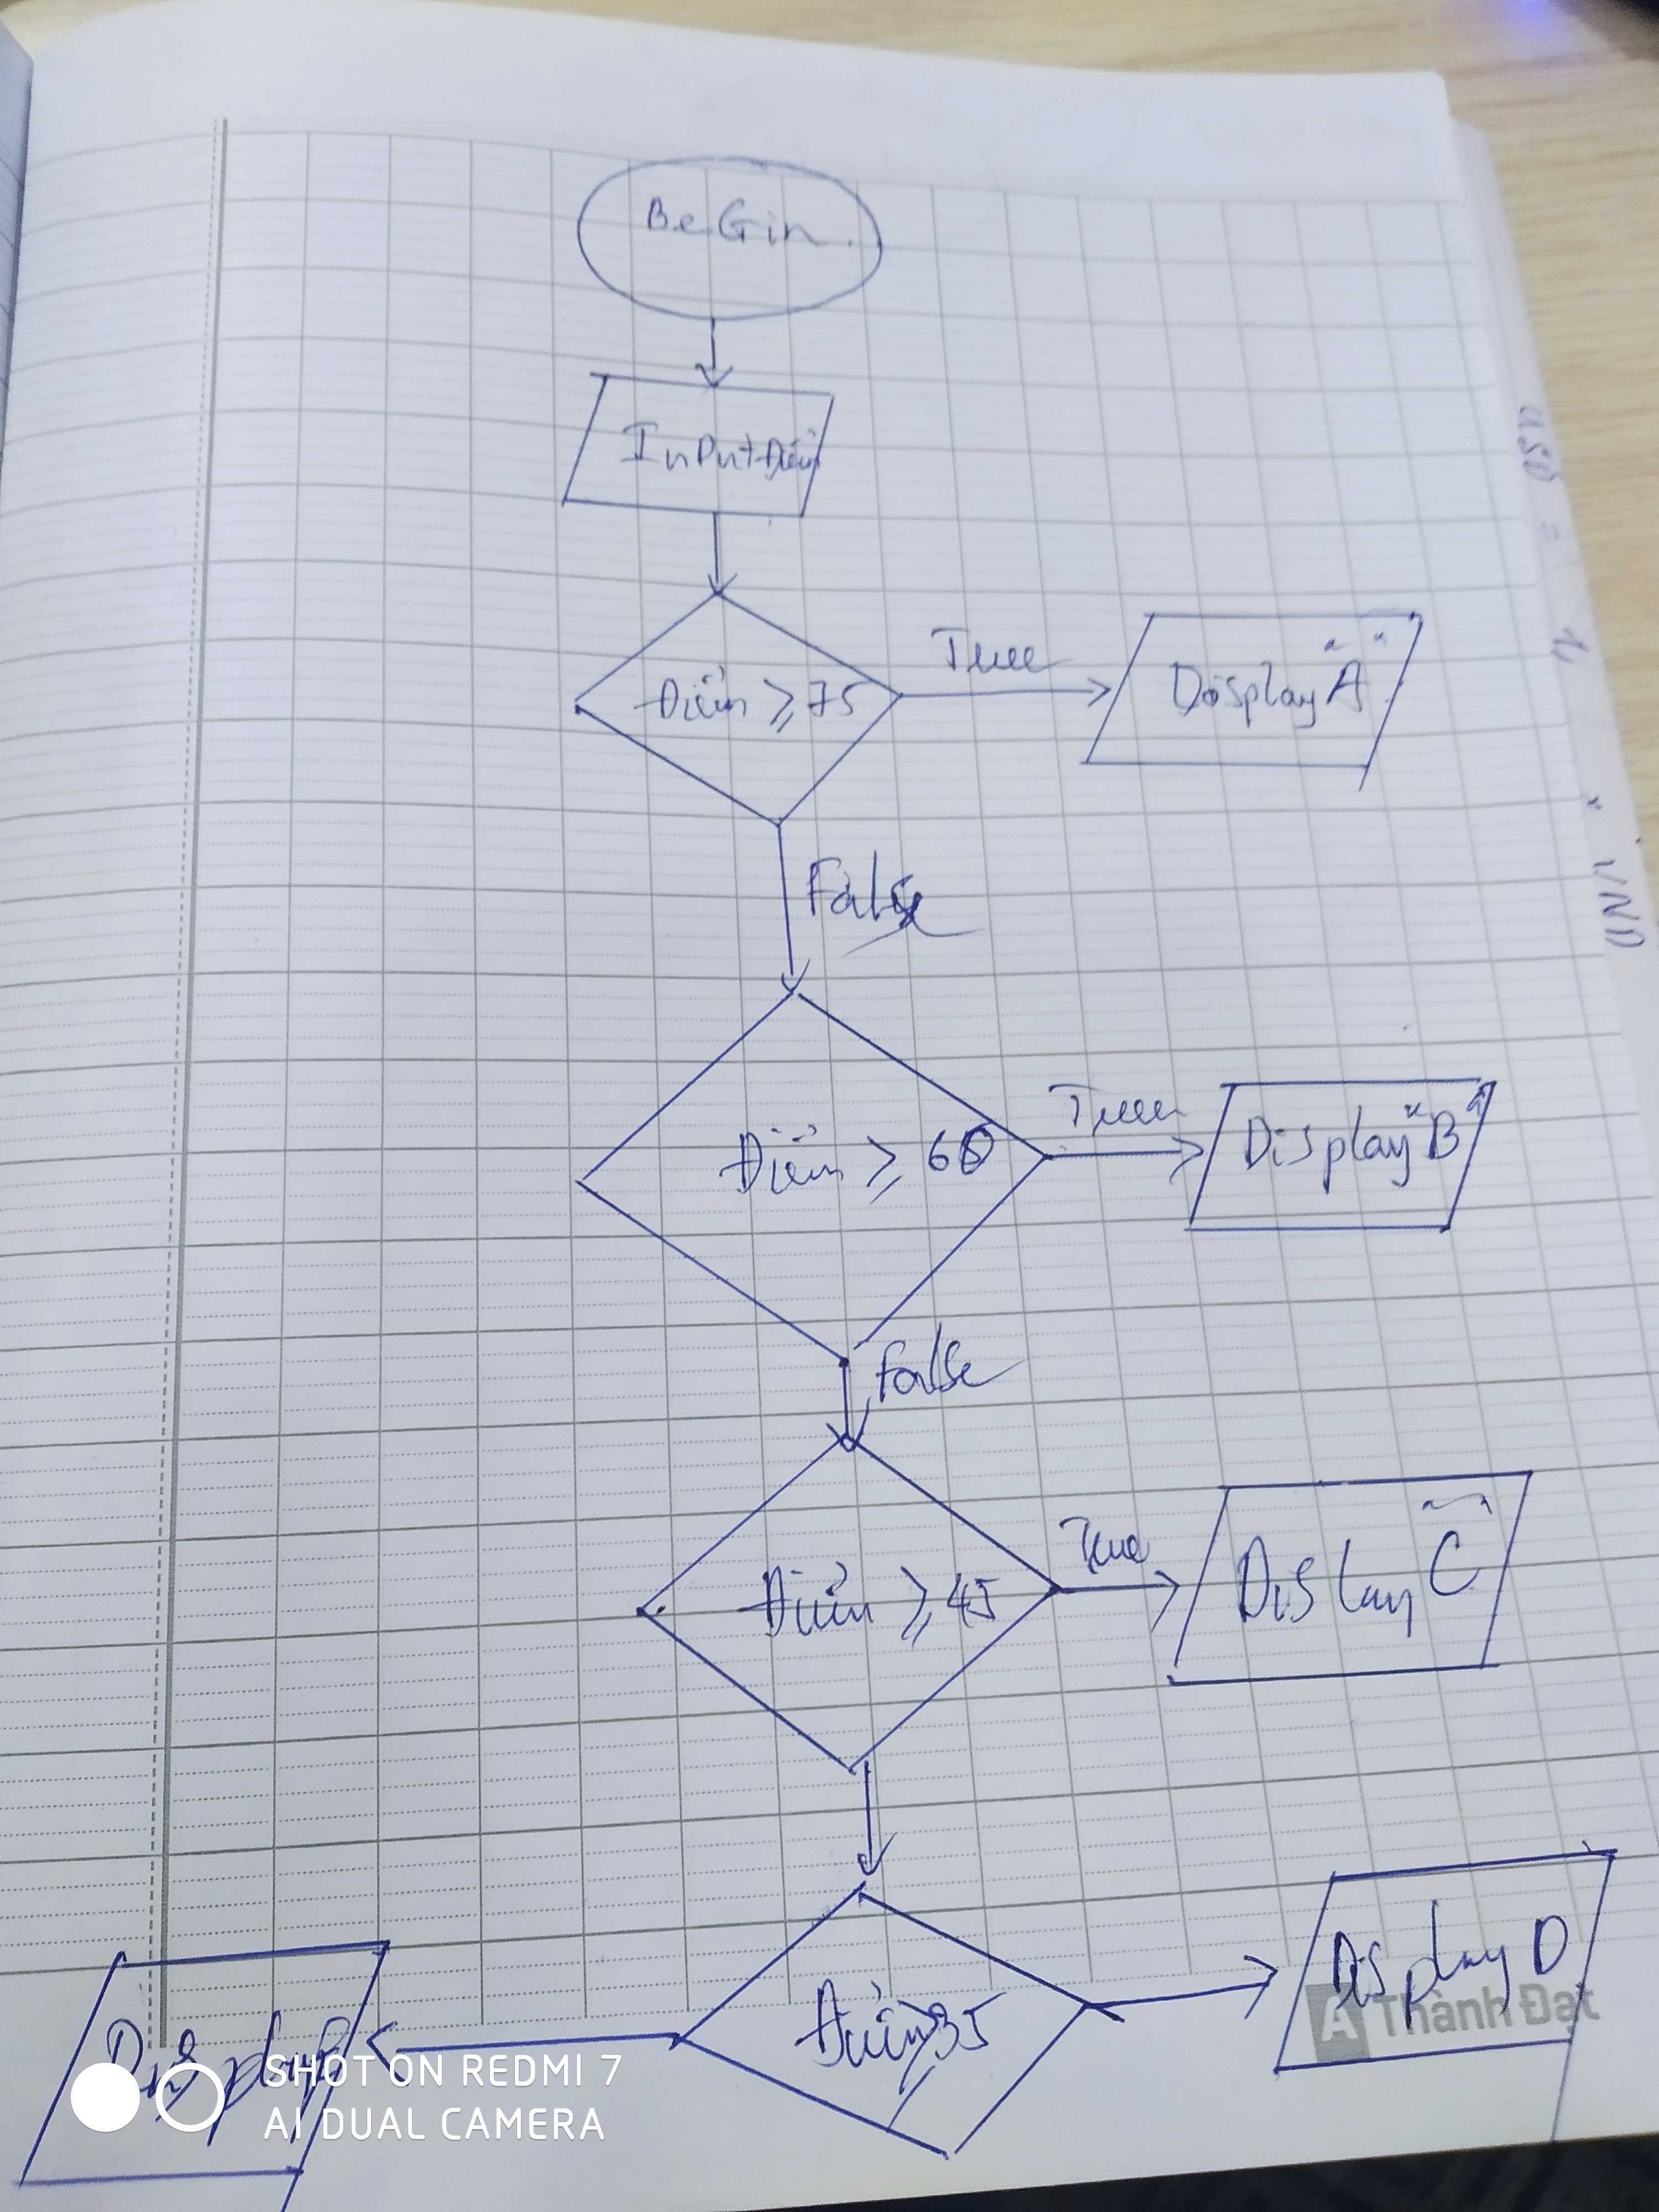 BeGin
Input Điểm
Điểm ≥ 75
True
Display "A"
False
Điểm ≥ 60
True
Display "B"
False
Điểm ≥ 45
True
Display "C"
Điểm ≥ 35
Display D
A Thành Đạt
SHOT ON REDMI 7
AI DUAL CAMERA
USD = 1
VND